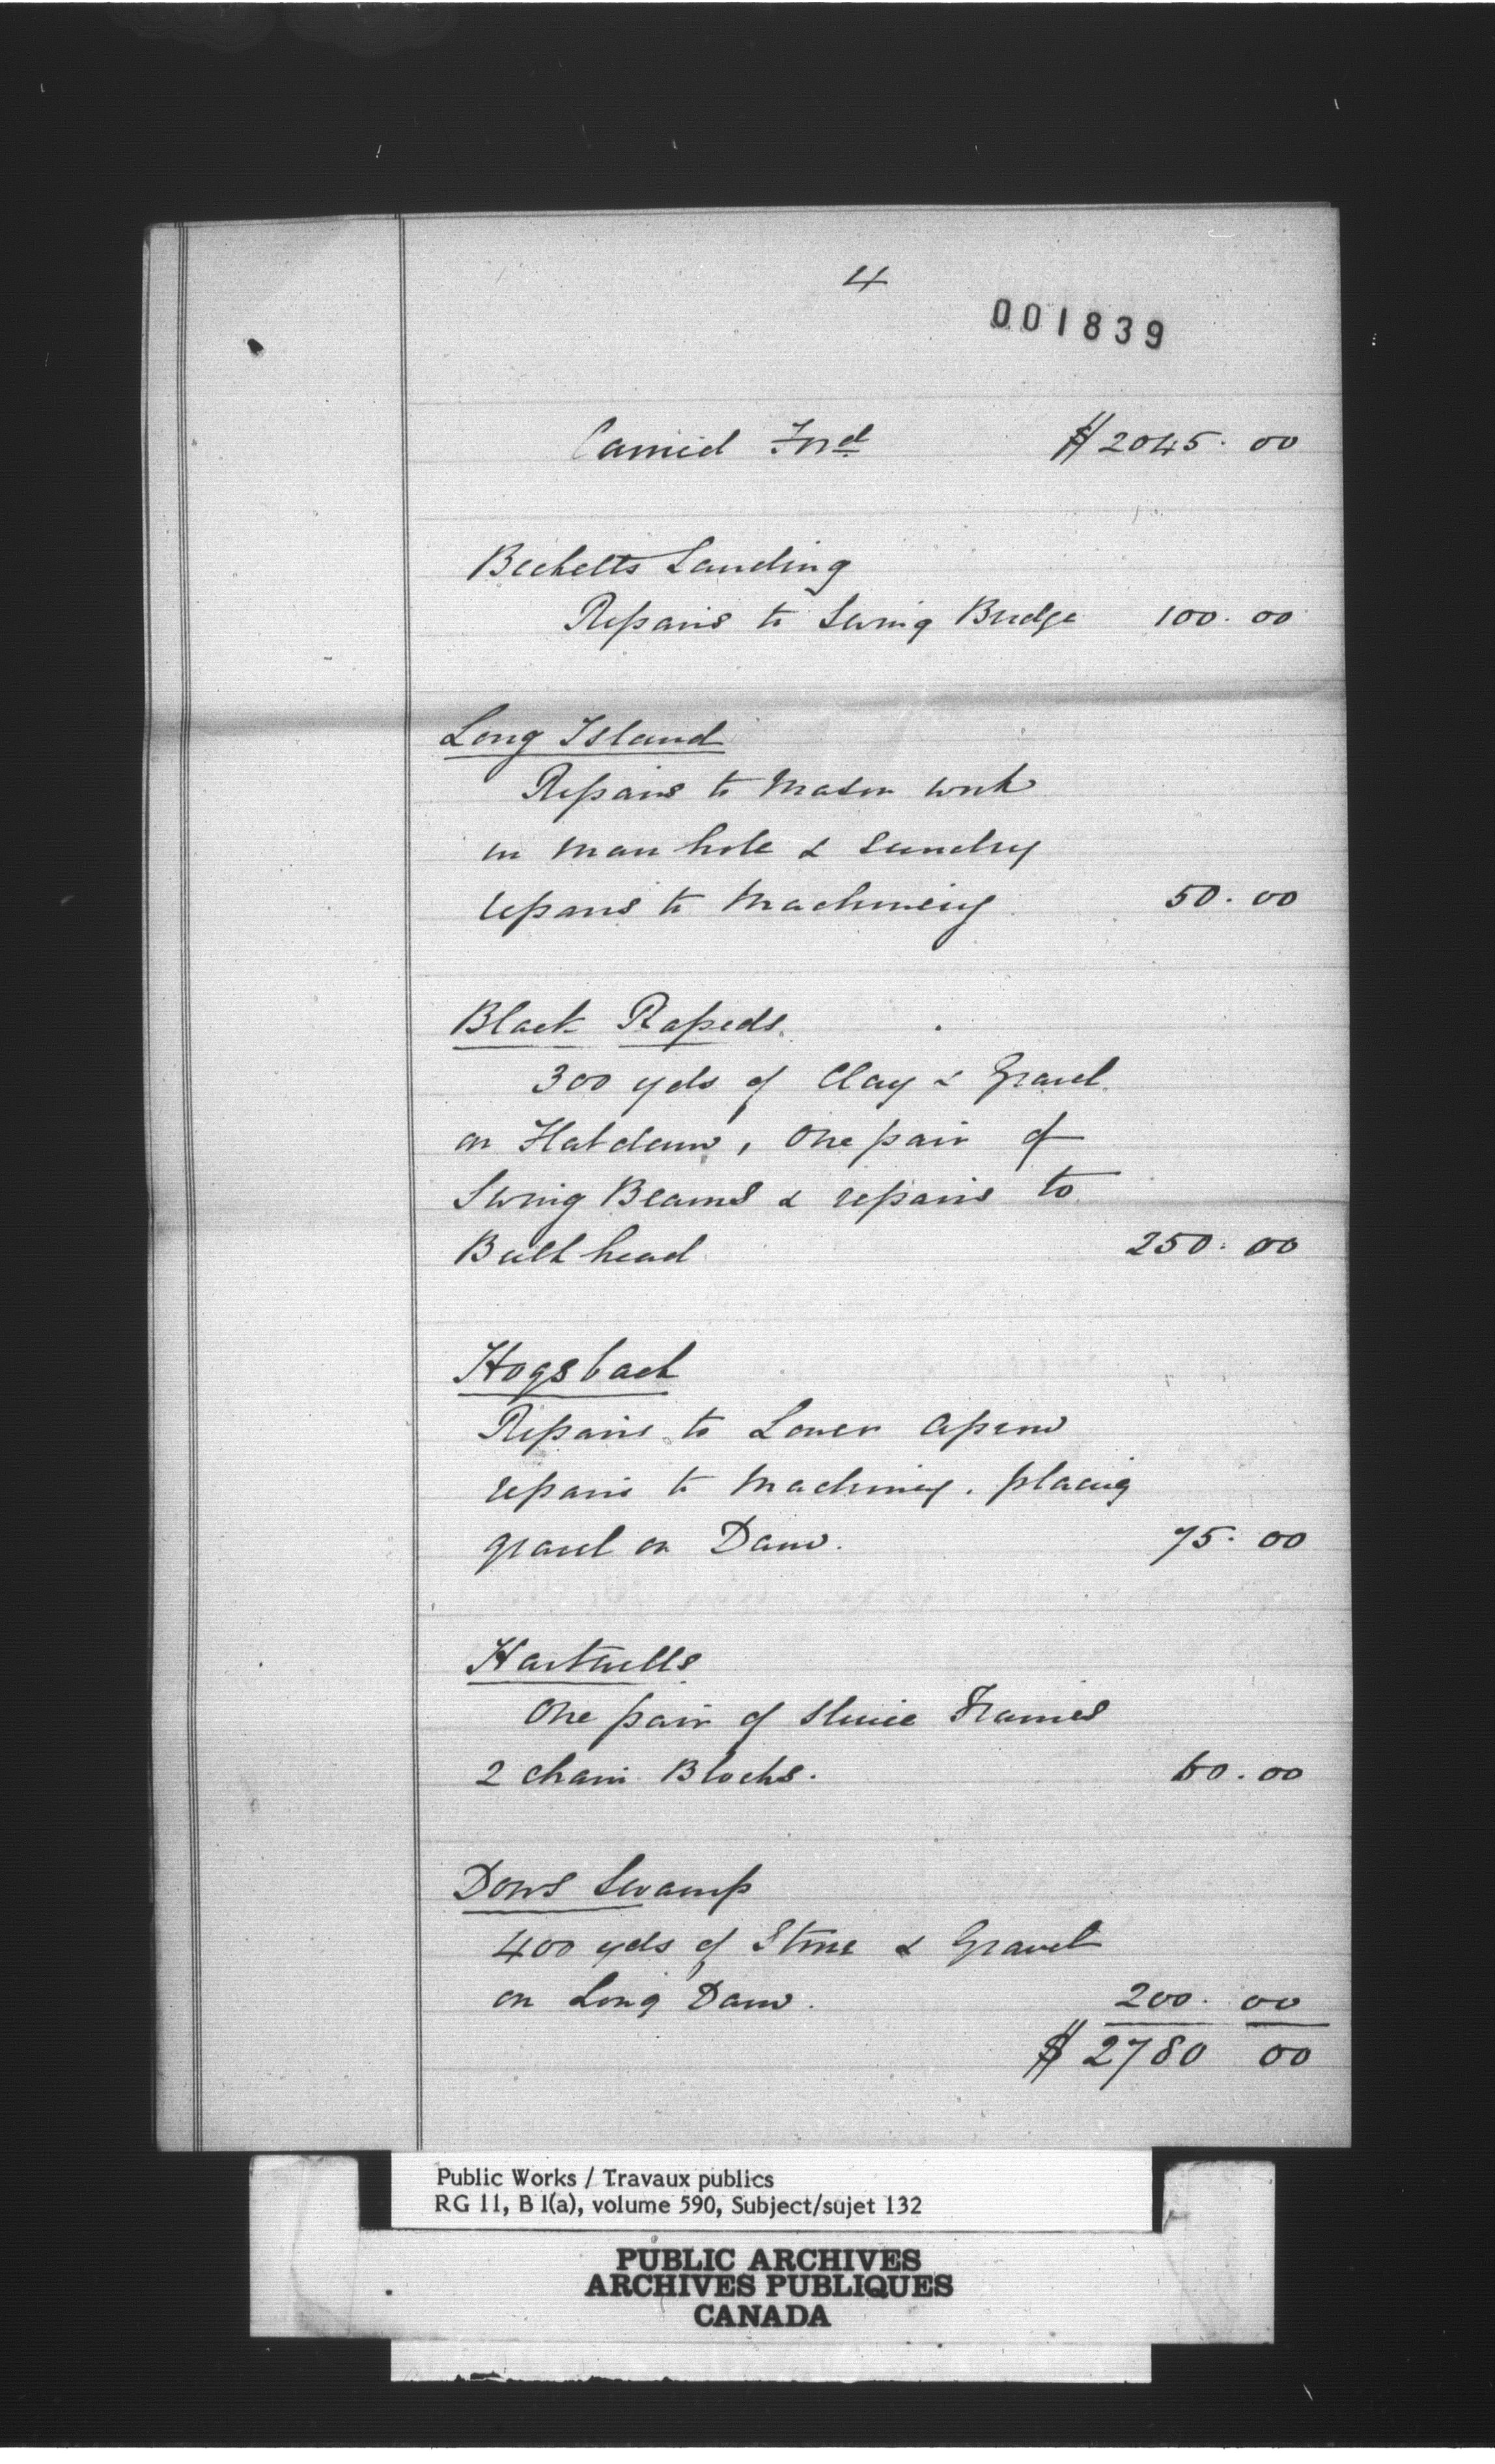 4
001839
Carried Ford $2045.00
Becketts Landing
Repairs to Swing Bridge 100.00
Long Island
Repairs to Mason work
in man hole & sundry
repairs to Machinery 50.00
Black Rapids.
300 yds of Clay & Gravel
on Flat dam, One pair of
Swing Beams & repairs to
Bulk head 250.00
Hogsback
Repairs to Lower Apron
repairs to Machinery. placing
gravel on Dam. 75.00
Hartwells
One pair of Sluice Frames
2 chain Blocks. 60.00
Dows Swamp
400 yds of Stone & Gravel
on Long Dam. 200.00
$2780 00
Public Works / Travaux publics
RG 11, B 1(a), volume 590, Subject/sujet 132
PUBLIC ARCHIVES
ARCHIVES PUBLIQUES
CANADA